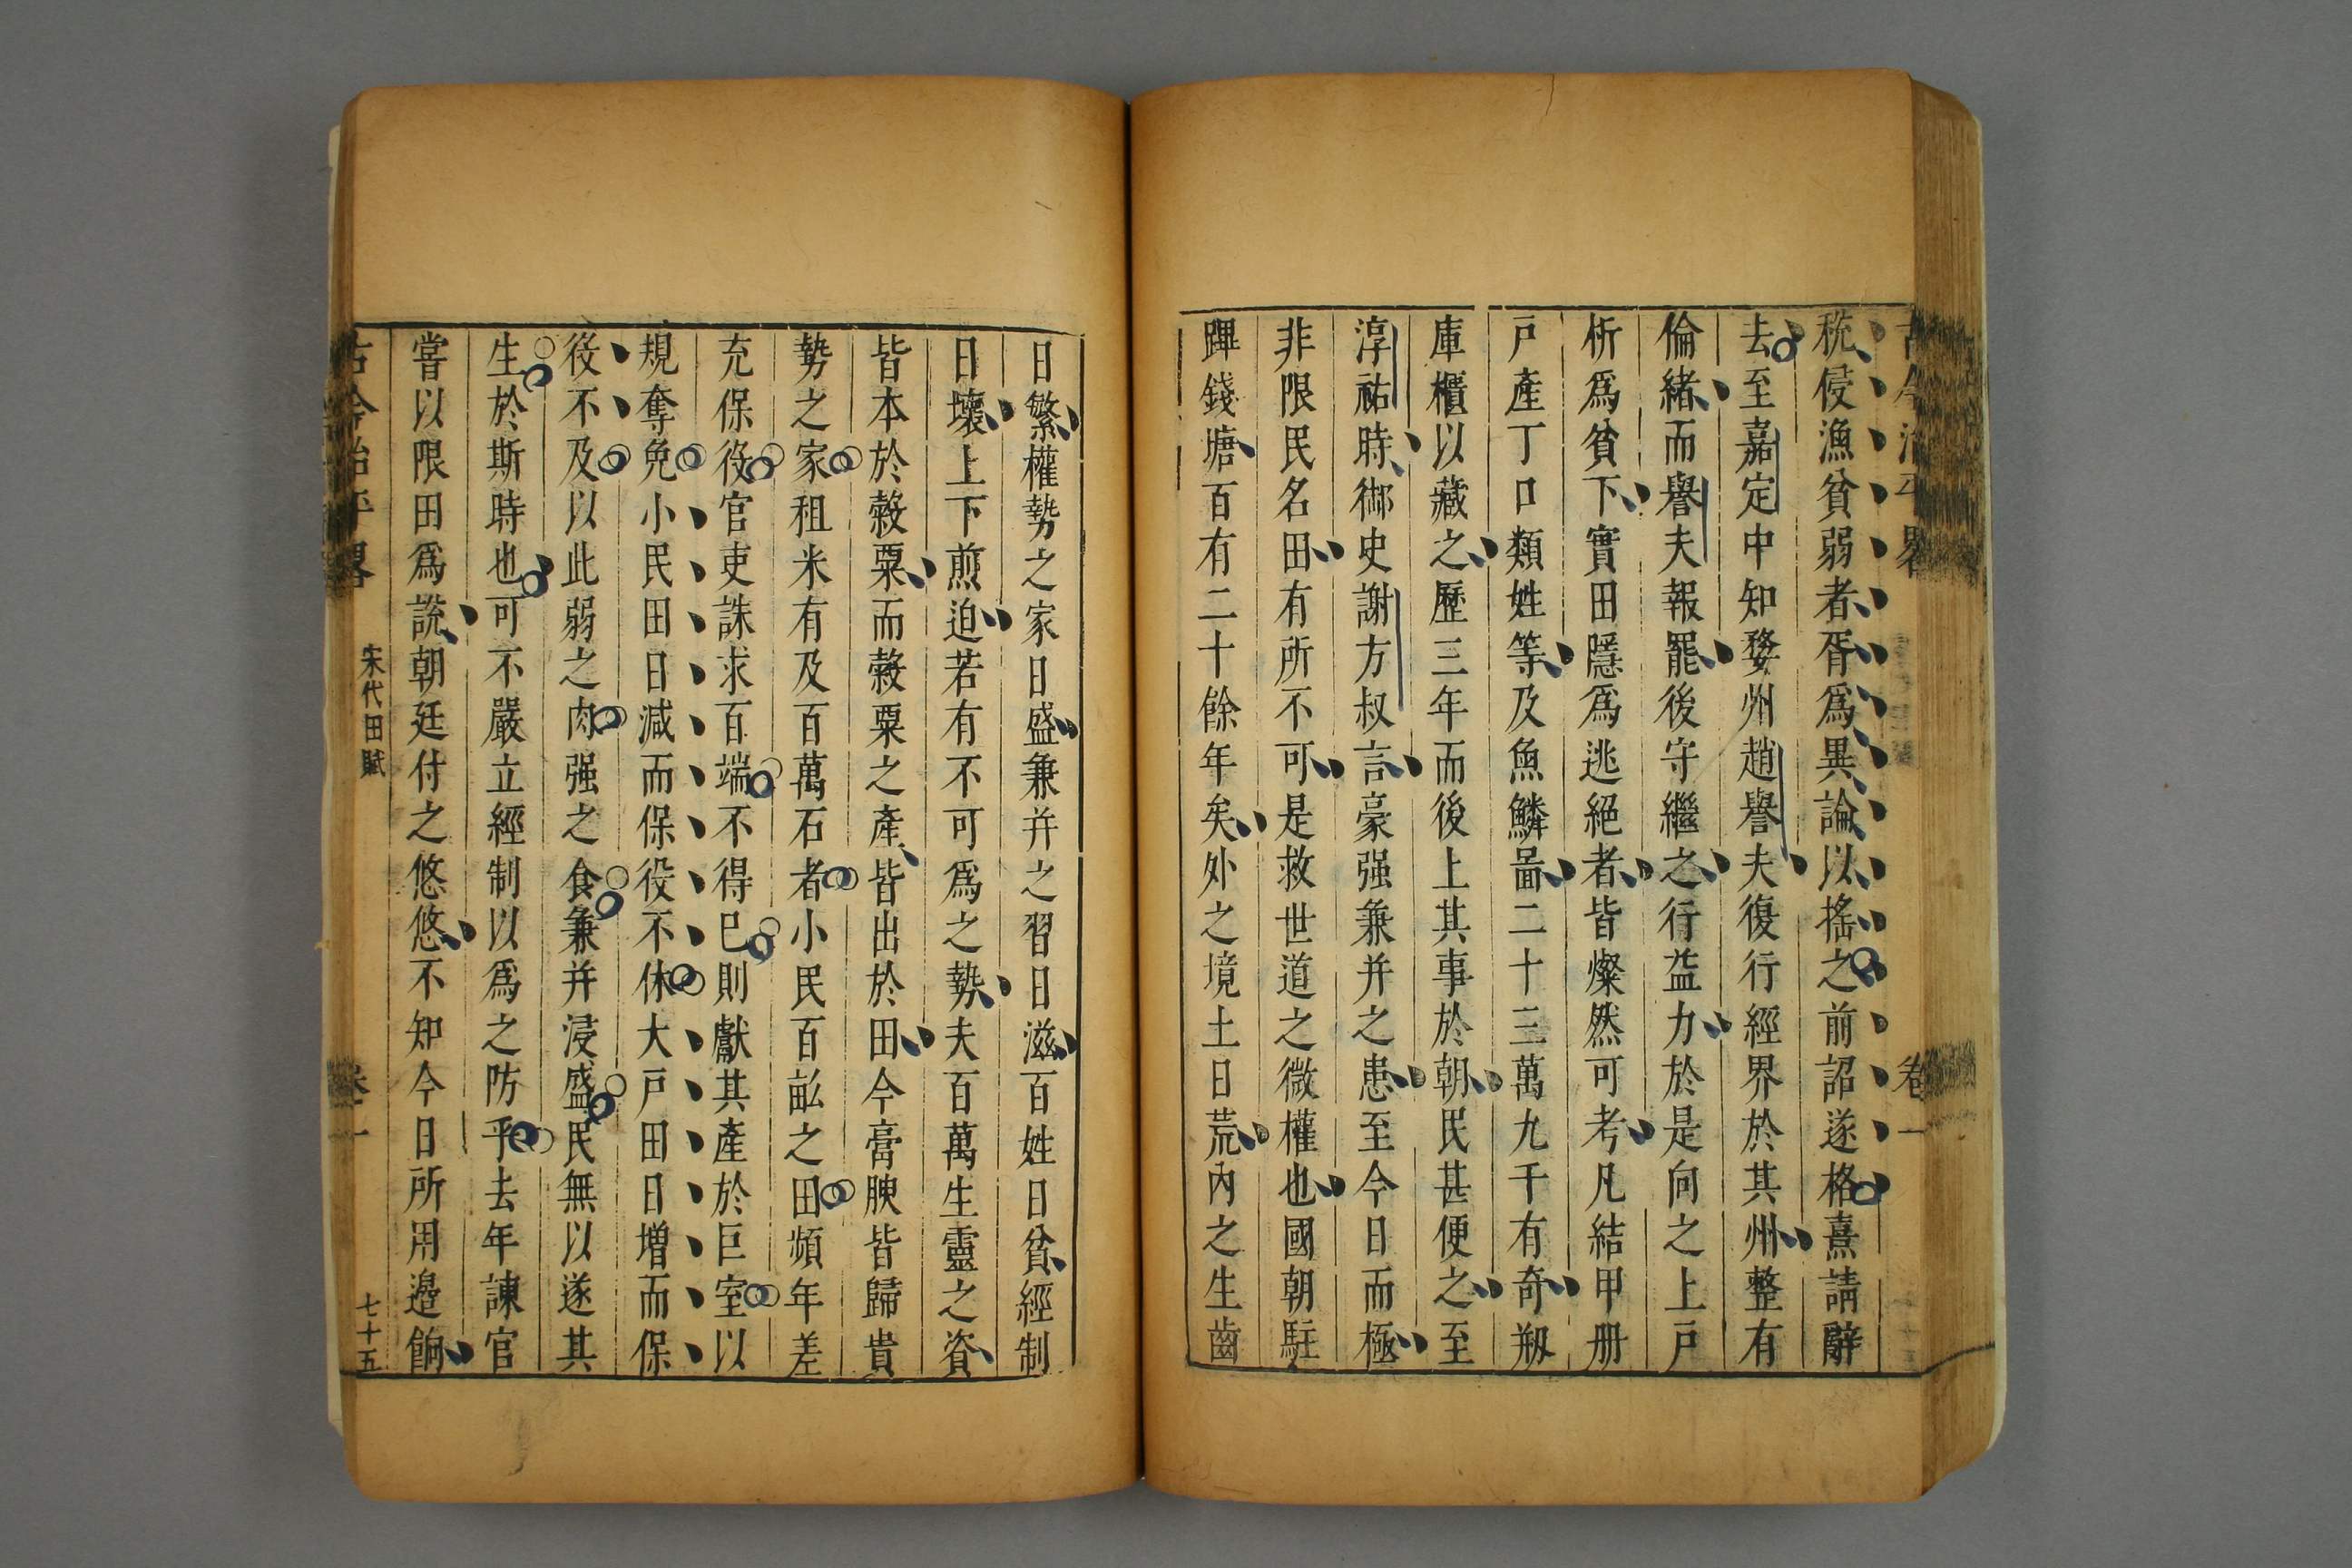 稅侵漁貧弱者胥爲異論以搖之前詔遂格熹請辭
去至嘉定中知婺州趙譽夫復行經界於其州整有
倫緒而譽夫報罷後守繼之行益力於是向之上戶
析爲貧下實田隱爲逃絕者皆燦然可考凡結甲册
戶產丁口類姓等及魚鱗啚二十三萬九千有奇剏
庫櫃以藏之歷三年而後上其事於朝民甚便之至
淳祐時御史謝方叔言豪强兼并之患至今日而極
非限民名田有所不可是救世道之微權也國朝駐
蹕錢塘百有二十餘年矣外之境土日荒內之生齒
日繁權勢之家日盛兼并之習日滋百姓日貧經制
日壞上下煎迫若有不可爲之勢夫百萬生靈之資
皆本於穀粟而穀粟之產皆出於田今膏腴皆歸貴
勢之家租米有及百萬石者小民百畝之田頻年差
充保役官吏誅求百端不得已則獻其產於巨室以
規奪免小民田日減而保役不休大戶田日增而保
役不及以此弱之肉强之食兼并浸盛民無以遂其
生於斯時也可不嚴立經制以爲之防乎去年諫官
嘗以限田爲說朝廷付之悠悠不知今日所用邉餉
古今治平畧 宋代田賦 卷一 七十五